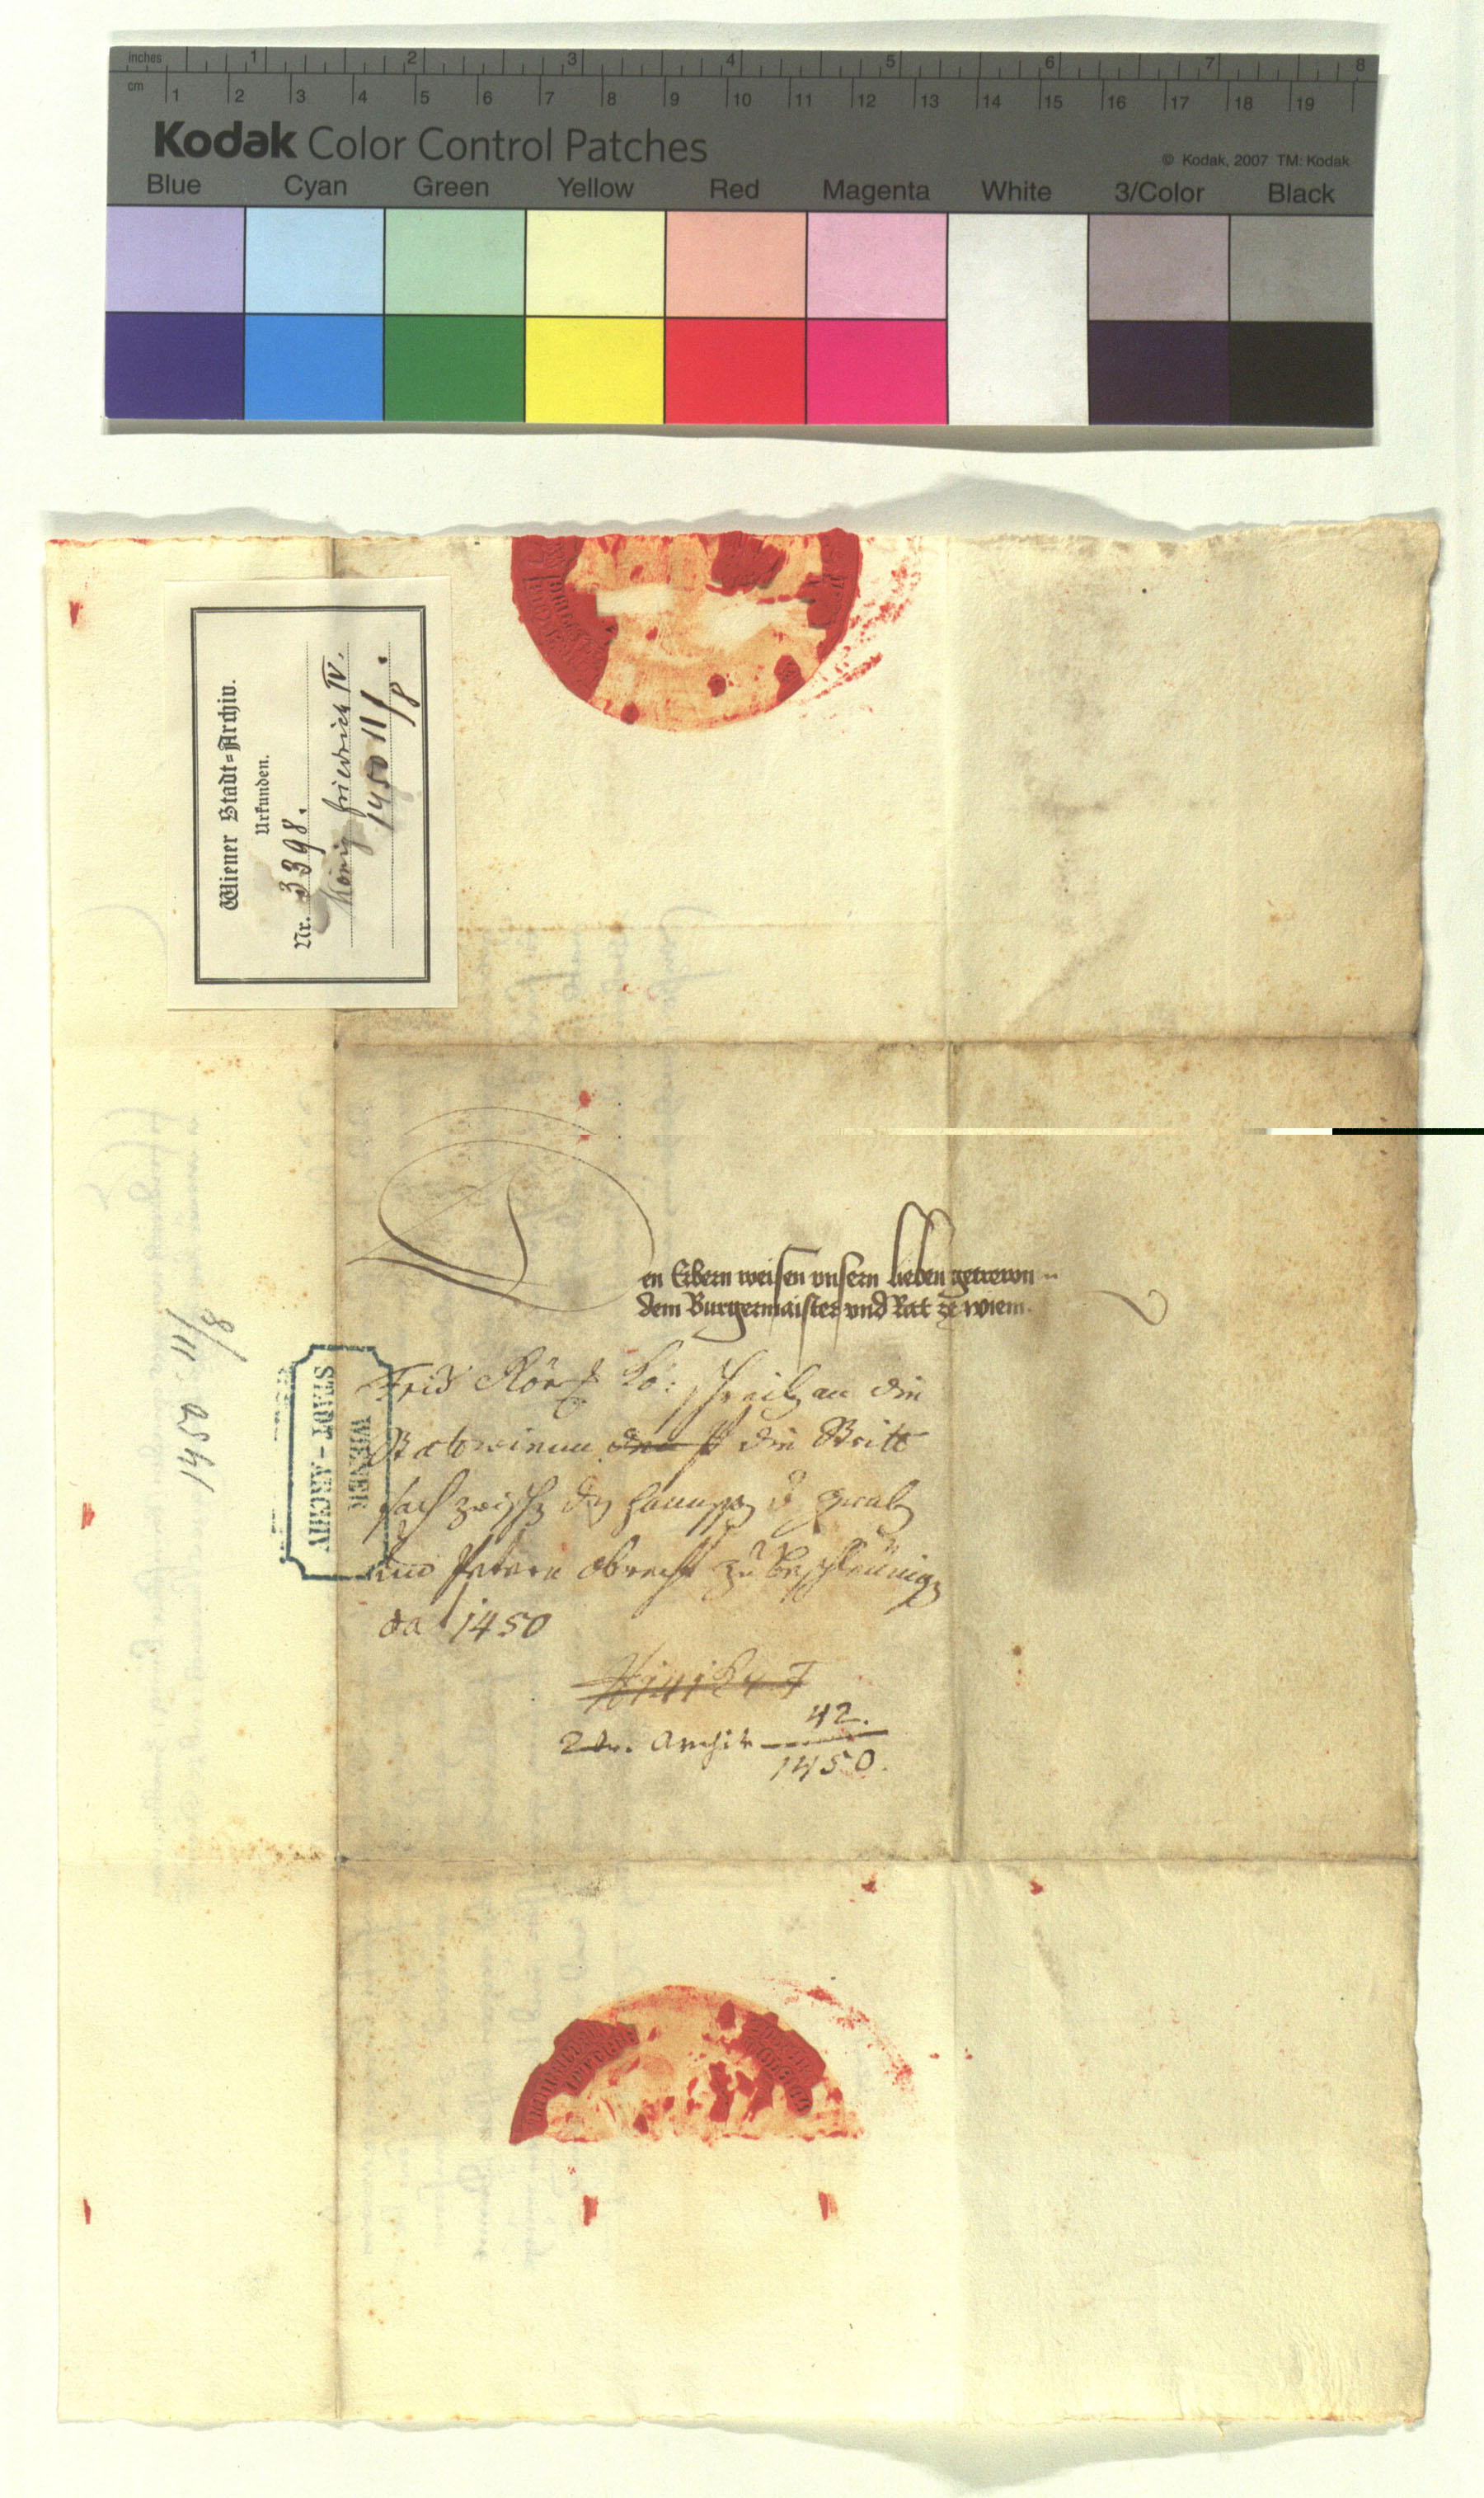 inches 1 2 3 4 5 6 7 8
cm 1 2 3 4 5 6 7 8 9 10 11 12 13 14 15 16 17 18 19
Kodak Color Control Patches
© Kodak, 2007 TM: Kodak
Blue Cyan Green Yellow Red Magenta White 3/Color Black
Wiener Stadt-Archiv.
Urkunden.
Nr. 3398.
König Friedrich IV.
1450 11/8.
Den Erbern weisen vnsern lieben getrewn
dem Burgermaister vnd Rat ze wienn
1450 11/8
WIENER
STADT-ARCHIV
Frid Röm Kö: schreib an die
Rat wienn die Stritt
sach zwisch
und Petern obrecht zu beschleünig
da 1450
42.
Archiv
1450.